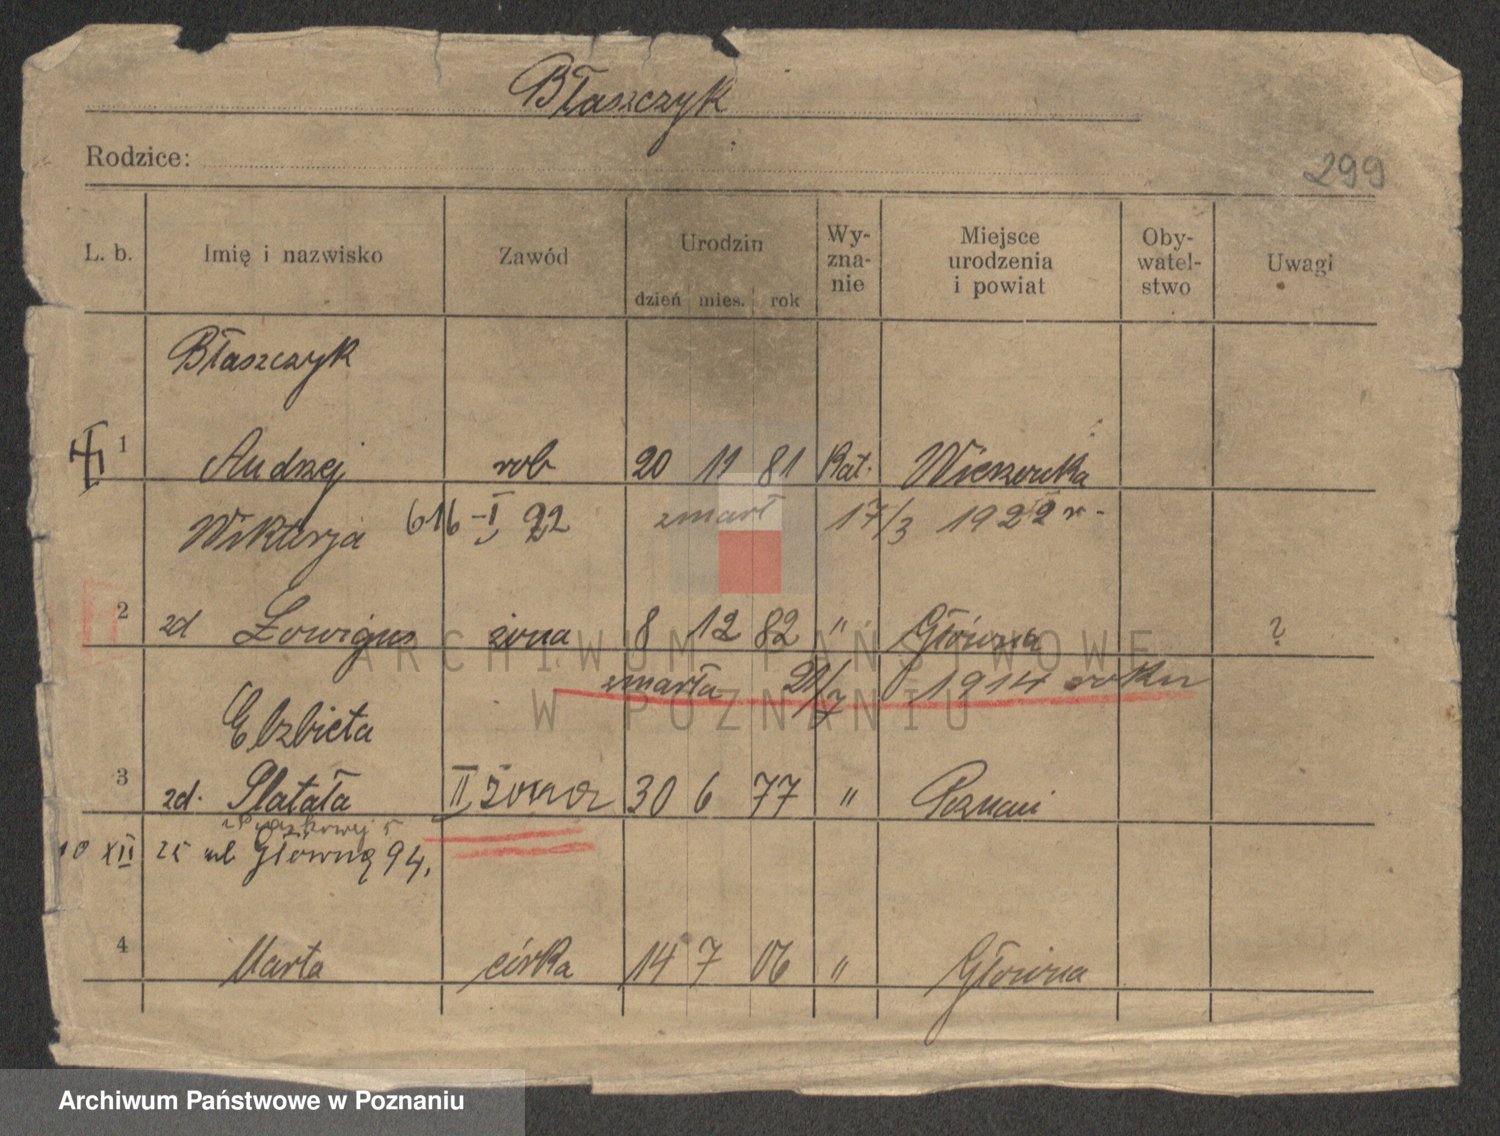 Błaszczyk
Rodzice:
299
L. b. Imię i nazwisko Zawód Urodzin dzień mies. rok Wy-zna-nie Miejsce urodzenia i powiat Oby-watel-stwo Uwagi
Błaszczyk
1 Andrzej rob 20 11 81 Kat. Wieszonka
Wiktorja 616 -I, 22 zmarł 17/3 1922 r.
2 zd Lowigus żona 8 12 82 " Główna ?
zmarła 21/7 1914 roku
Elzbieta
3 zd. Platała II żona 30 6 77 " Poznań
10 XII 25 ul Główną 94,
4 Marta córka 14 7 06 " Główna
ARCHIWUM PAŃSTWOWE
W POZNANIU
Archiwum Państwowe w Poznaniu